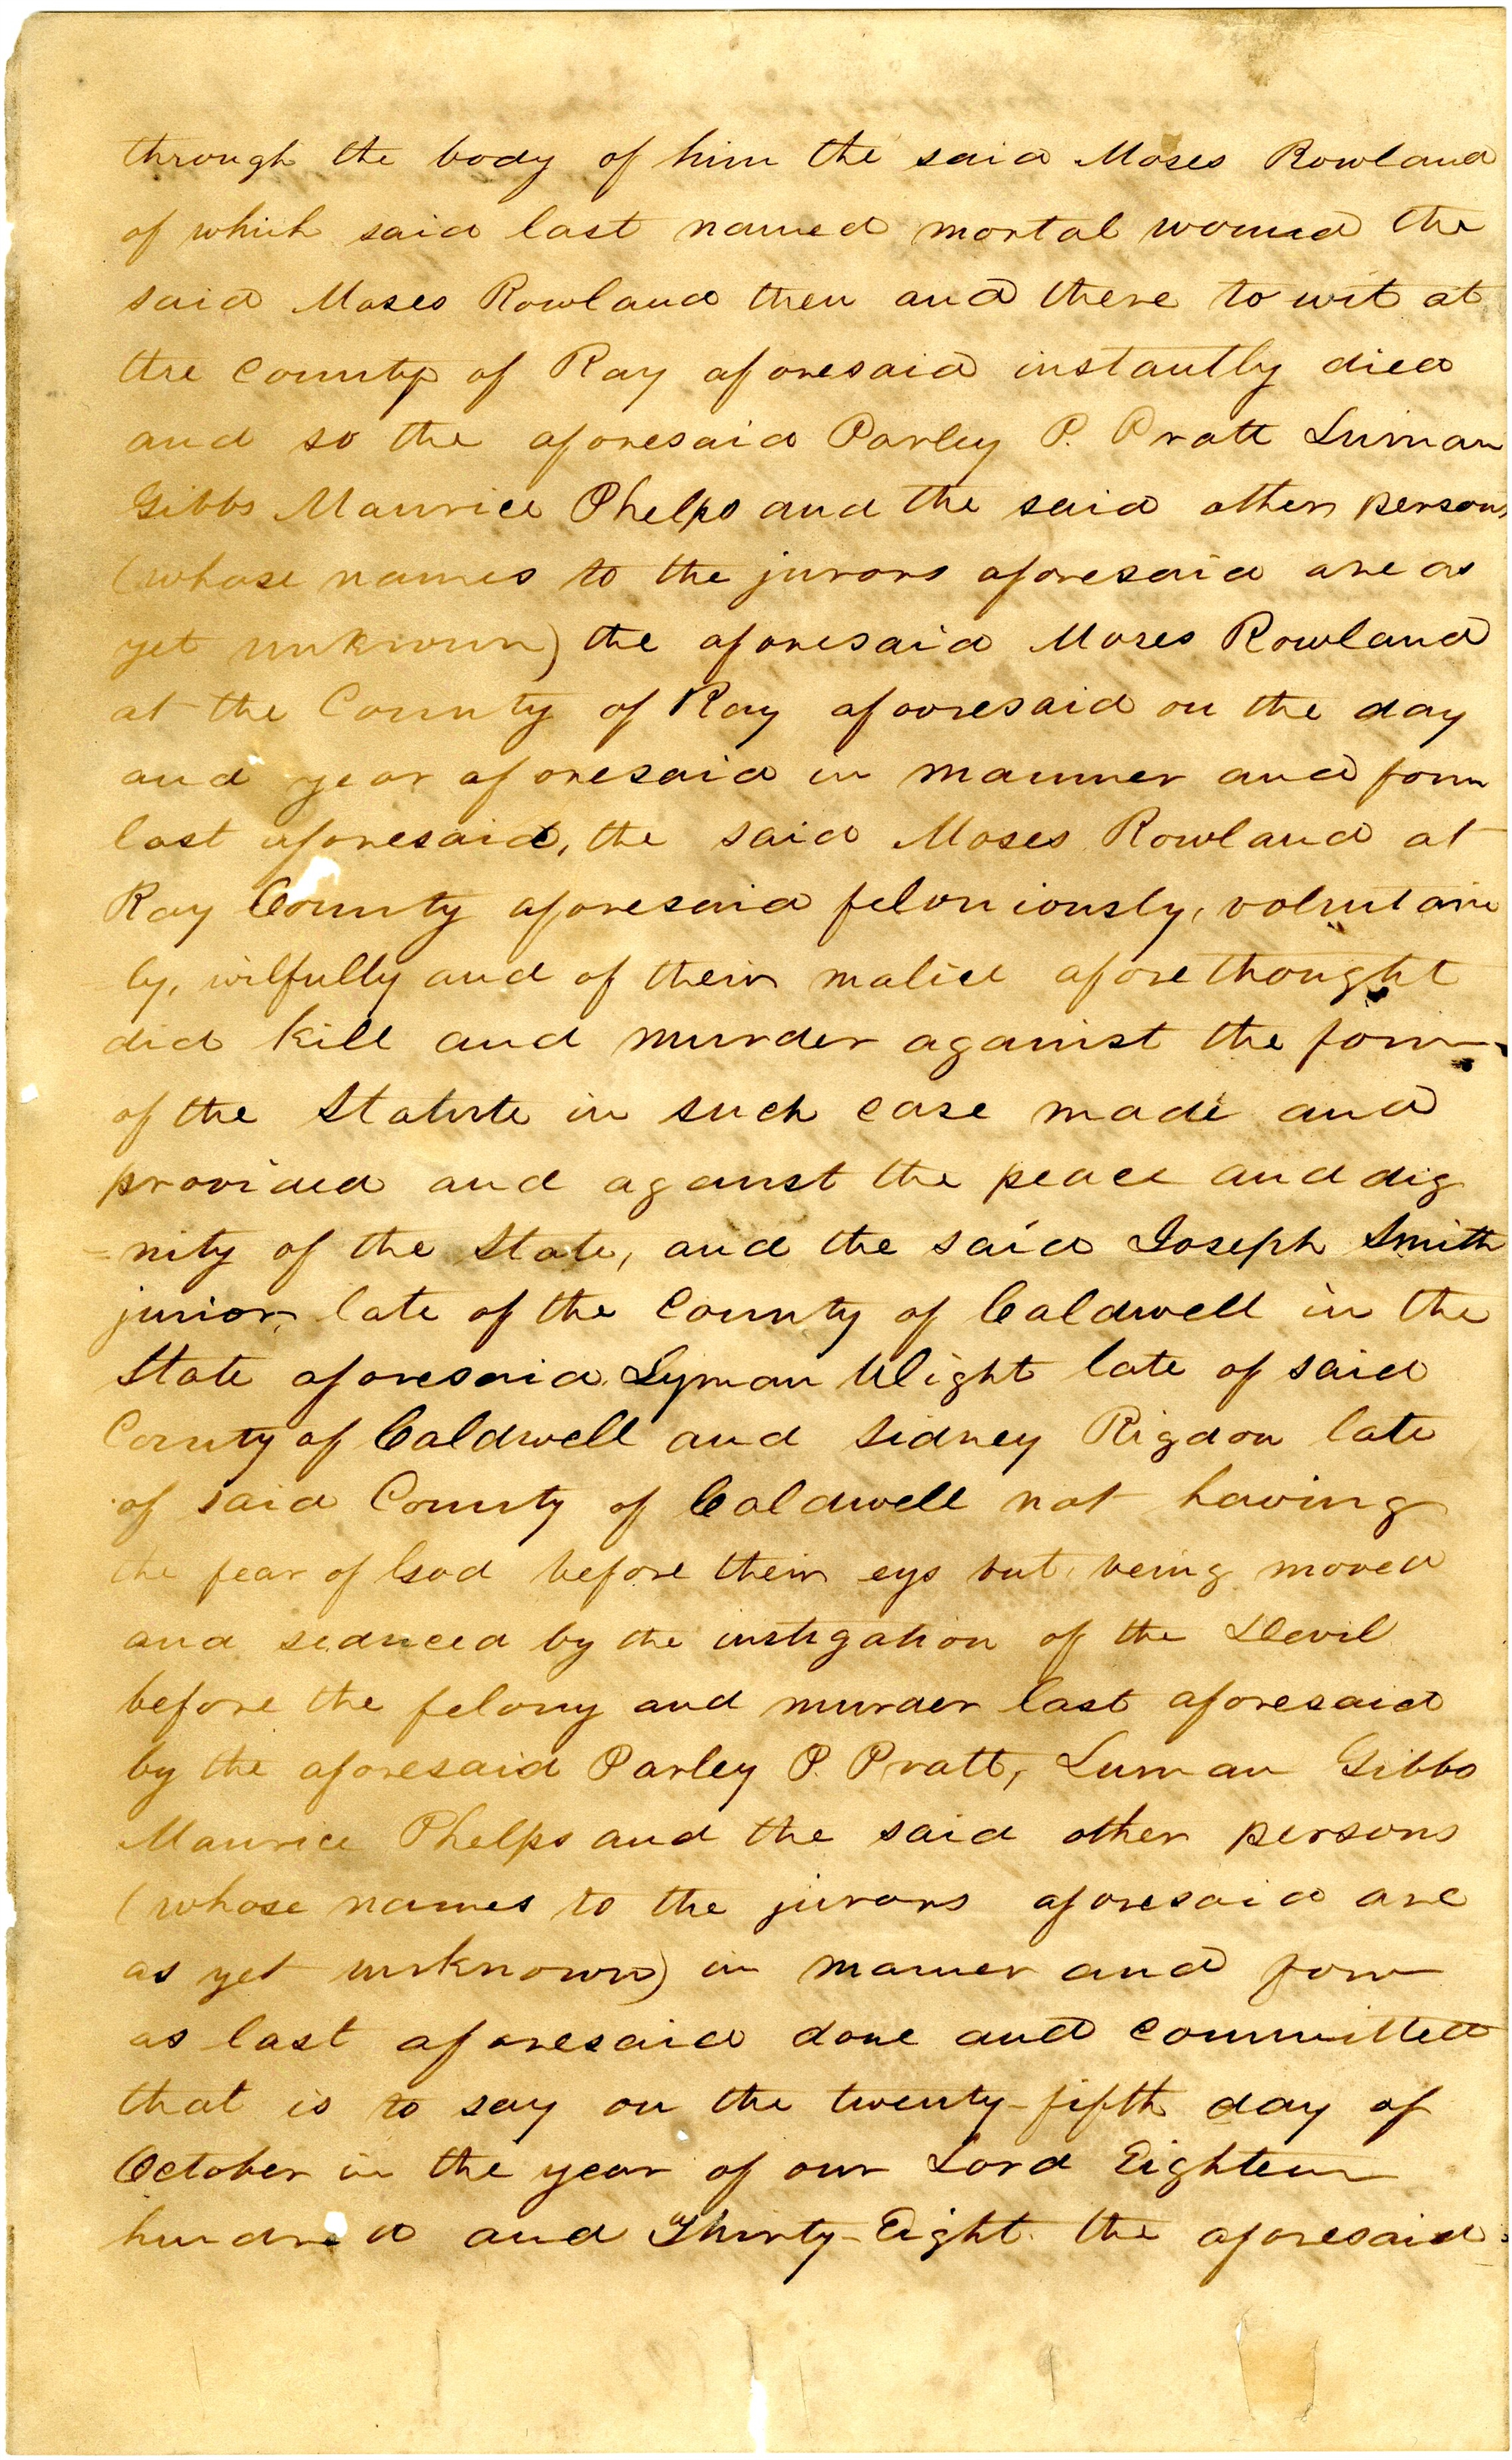 through the body of him the said Moses Rowland
of which said last named mortal wound the
said Moses Rowland then and there to wit at
the County of Ray aforesaid instantly died
and so the aforesaid Parley P. Pratt Luman
Gibbs Maurice Phelps and the said other persons
(whose names to the jurors aforesaid are as
yet unknown) the aforesaid Moses Rowland
at the County of Ray afooresaid on the day
and year aforesaid in manner and form
last aforesaid, the said Moses Rowland at
Ray County aforesaid feloniously, voluntari
ly, wilfully and of their malice aforethought
did kill and murder against the form
of the Statute in such case made and
provided and against the peace and dig
=nity of the State, and the said Joseph Smith
junior, late of the County of Caldwell in the
State aforesaid Lyman Wight late of said
County of Caldwell and Sidney Rigdon late
of said County of Caldwell not having
the fear of God before their eys but being moved
and seduced by the instigation of the Devil
before the felony and murder last aforesaid
by the aforesaid Parley P. Pratt, Luman Gibbs
Maurice Phelps and the said other persons
(whose names to the jurors aforesaid are
as yet unknown) in manner and form
as last aforesaid done and committed
that is to say on the twenty-fifth day of
October in the year of our Lord Eighteen
hundred and Thirty-Eight the aforesaid